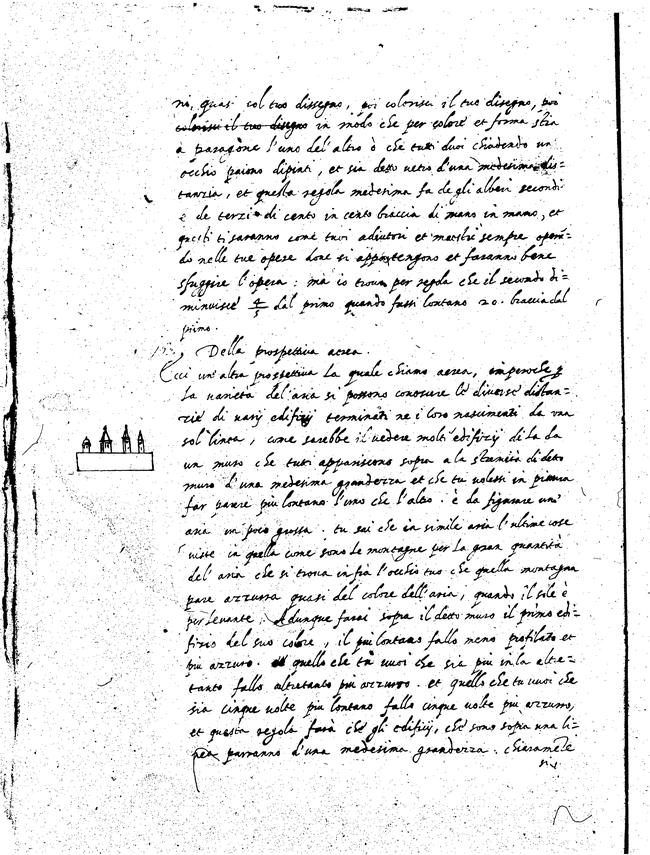 ni, quasi col tuo dissegno, poi colorisci il tuo disegno, poi
colorisci il tuo disegno in modo che per colore et forma stia
a paragone l'uno del'altro ò che tutti duoi chiudendo un
occhio paiono dipinti, et sia detto uetro d'una medesima dis=
tanzia, et questa regola medesima fa de gli alberi secondi
è de terzi di cento in cento braccia di mano in mano, et
questi ti saranno come tuoi adiutori et maestri sempre operā=
do nelle tue opere doue si appartengono et faranno bene
sfuggire l'opera: ma io trouo per regola che il secondo di=
minuisce 4/5 dal primo quando fussi lontano 20. braccia dal
primo.
Della prospettiua aerea.
Ecci un'altra prospettiua la quale chiamo aerea, imperoche p
la uarietà del'aria si possono conoscere le diuerse distan=
zie di uarij edifizij terminati ne i loro nascimenti da una
sol linea, come sarebbe il uedere molti edifizij di la da
un muro che tutti appariscono sopra a la stremità di detto
muro d'una medesima grandezza et che tu uolessi in pittura
far parere piu lontano l'uno che l'altro. è da figurare un'
aria un poco grossa. tu sai che in simile aria l'ultime cose
uiste in quella come sono le montagne per la gran quantità
del'aria che si troua infra l'occhio tuo che quella montagna
pare azzurra quasi del colore dell'aria, quando il sole è
per leuante. Adunque farai sopra il detto muro il primo edi=
fizio del suo colore, il piu lontano fallo meno profilato et
piu azzurro. quello che tù uuoi che sia piu in la altre=
tanto fallo altretanto piu azzurro. et quello che tu uuoi che
sia cinque uolte piu lontano fallo cinque uolte piu azzurro,
et questa regola farà che gli edifizij, che sono sopra una li=
nea parranno d'una medesima grandezza. chiaramēte
si